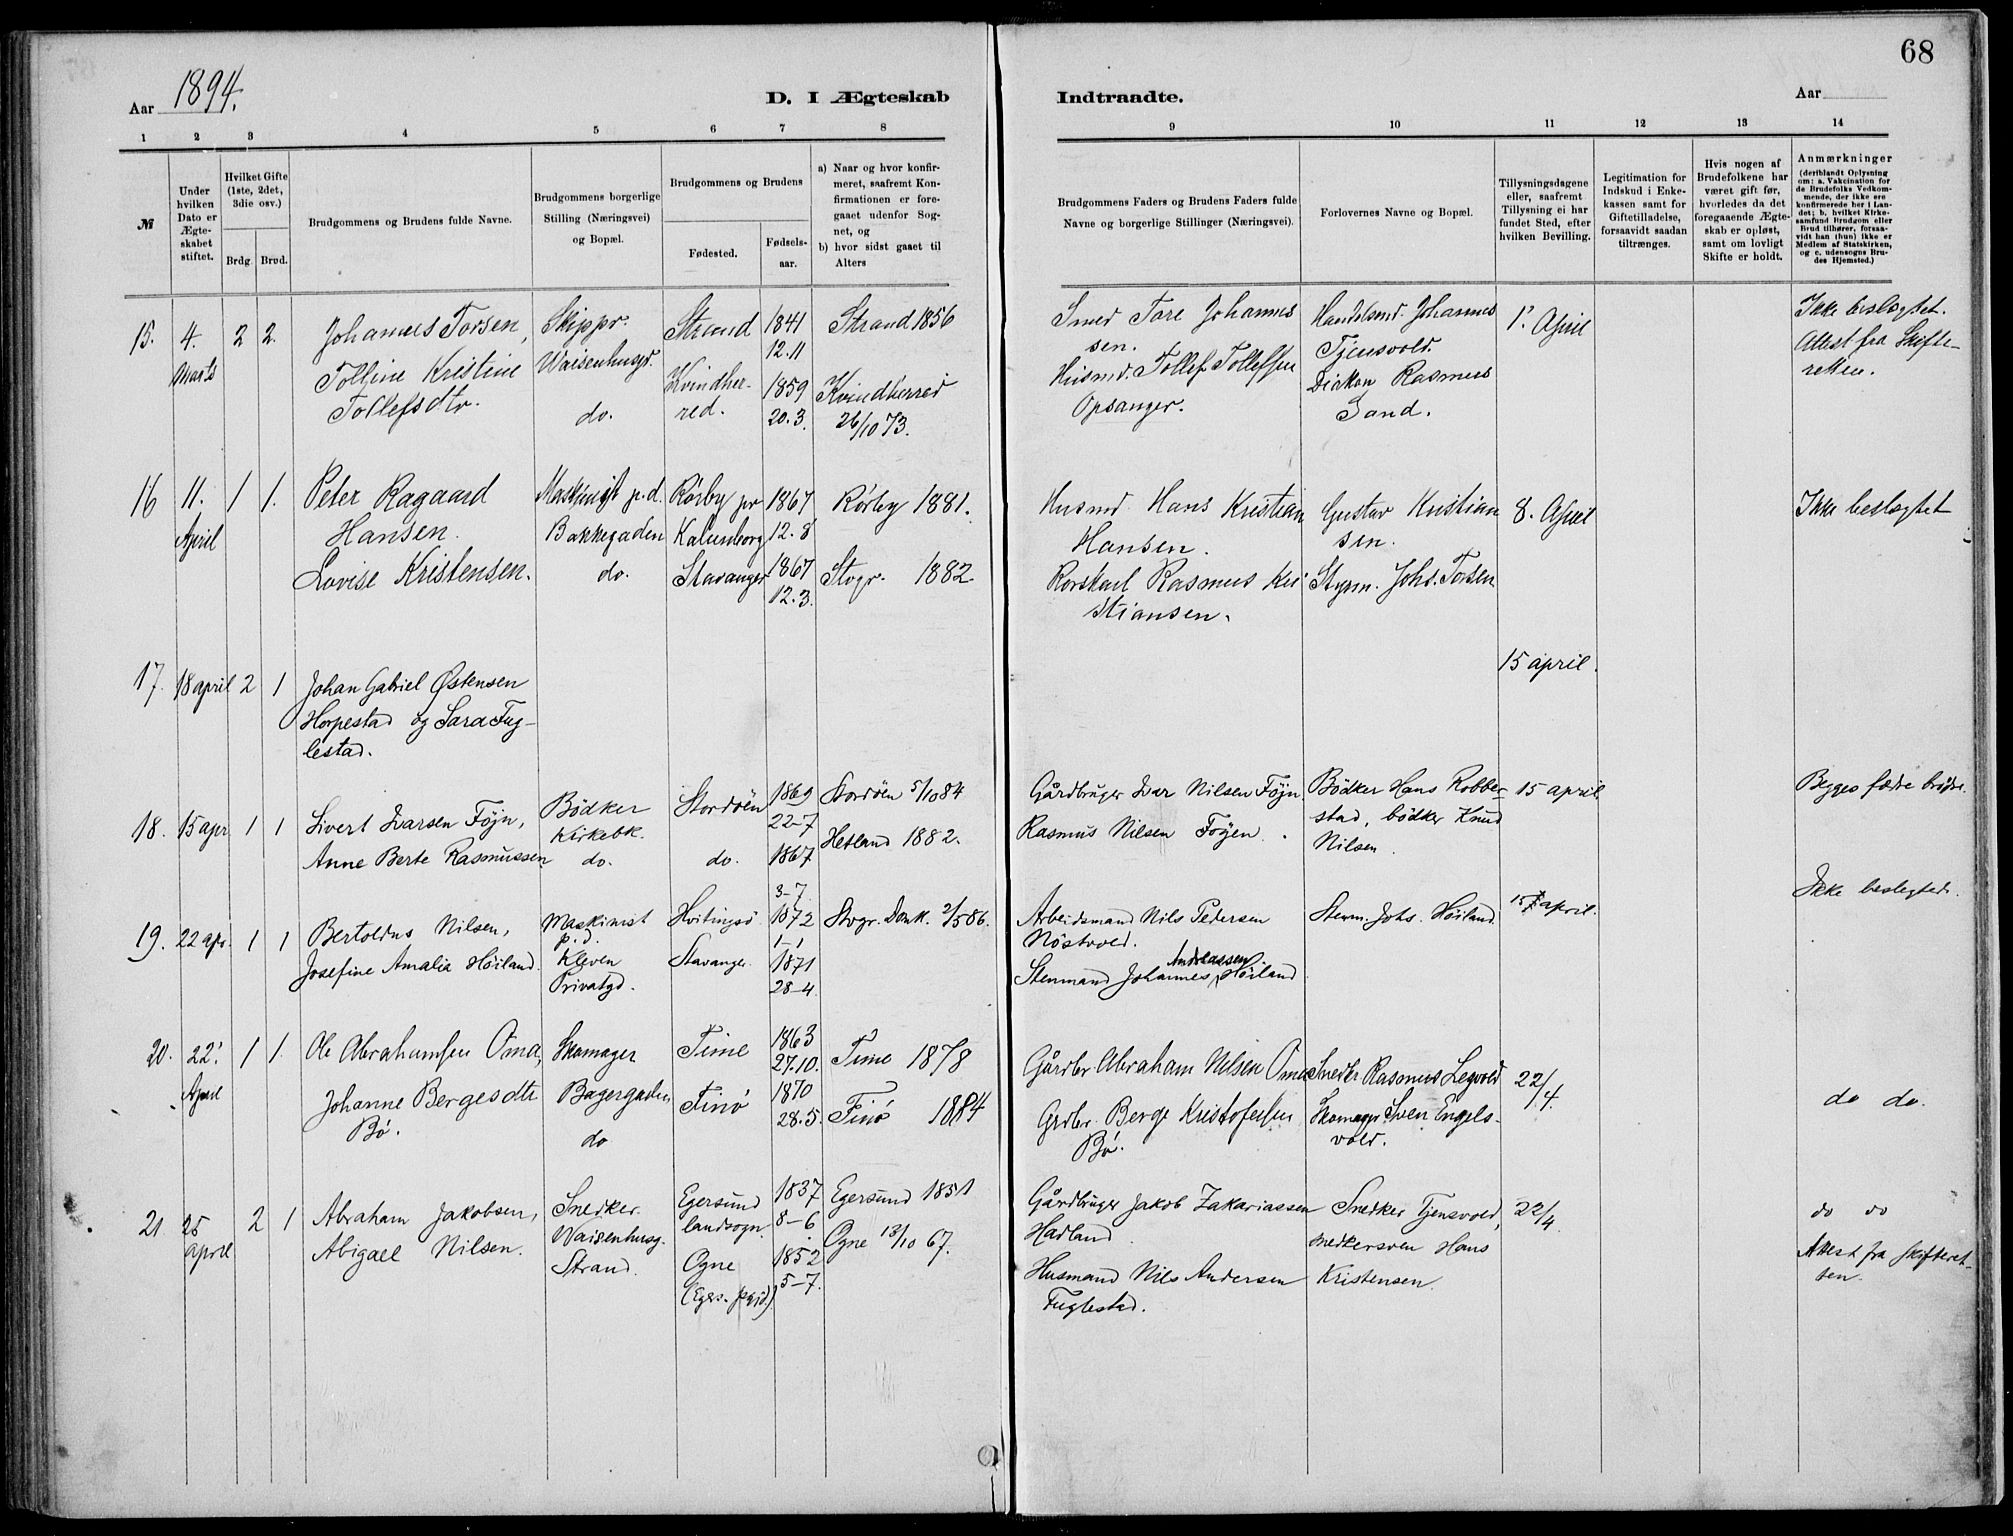 68
Aar 1894.
D. I Ægteskab
Indtraadte.
Aar
1 2 3 4 5 6 7 8
9 10 11 12 13 14
№
Under hvilken Dato er Ægteskabet stiftet.
Hvilket Gifte (1ste, 2det, 3die osv.)
Brdg. Brud.
Brudgommens og Brudens fulde Navne.
Brudgommens borgerlige Stilling (Næringsvei) og Bopæl.
Brudgommens og Brudens
Fødested.
Fødsels-aar.
a) Naar og hvor konfirmeret, saafremt Konfirmationen er foregaaet udenfor Sognet, og
b) hvor sidst gaaet til Alters
Brudgommens Faders og Brudens Faders fulde Navne og borgerlige Stillinger (Næringsvei).
Forlovernes Navne og Bopæl.
Tillysningsdagene eller, saafremt Tillysning ei har fundet Sted, efter hvilken Bevilling.
Legitimation for Indskud i Enkekassen samt for Giftetilladelse, forsaavidt saadan tiltrænges.
Hvis nogen af Brudefolkene har været gift før, hvorledes da det foregaaende Ægteskab er opløst, samt om lovligt Skifte er holdt.
Anmærkninger
(deriblandt Oplysning om: a. Vakcination for de Brudefolks Vedkommende, der ikke ere konfirmerede her i Landet; b. hvilket Kirkesamfund Brudgom eller Brud tilhører, forsaavidt han (hun) ikke er Medlem af Statskirken, og c. udensogns Brudes Hjemsted.)
15. 4. Marts 2 2.
Johannes Torsen,
Tolline Kristine
Tollefsdtr.
Skippr.
Waisenhusgd.
do.
Strand
Kvindher-
red.
1841
12.11
1859
20.3.
Strand 1856
Kvindherred
26/10 73.
Smed Tore Johannes
sen.
Husmd. Tollef Tollefsen
Opsanger.
Handelsmd. Johannes
Tjensvold.
Diakon Rasmus
Sand.
1' April
Ikke beslægtet.
Attest fra Skifte-
retten.
16 11. April 1 1.
Peter Ragaard
Hansen.
Lovise Kristensen.
Maskinist p.d.
Bakkegaden
do.
Rörby pr
Kalunborg
Stavanger
1867
12.8
1867
12.3.
Rörby 1881.
Stvgr. 1882
Husmd Hans Kristian
Hansen.
Rorskarl Rasmus Kri
stiansen.
Gustav Kristian
sen.
Styrm. Johs. Torsen
8. April
Ikke beslægtet
17. 18 april 2 1
Johan Gabriel Østensen
Horpestad og Sara Fug-
lestad.
15 april.
18. 15 apr 1 1
Sivert Ivarsen Föjn,
Anne Berte Rasmussen
Bödker
Kirkebk.
do.
Stordöen
do.
1869
22-7
1867
3-7
Stordöen 5/10 84
Hetland 1882.
Gårdbruger Ivar Nilsen Föjn
Rasmus Nilsen Föyen.
Bödker Hans Robber
stad, bödker Knud
Nilsen
15 april
Begges fædre brödre.
19. 22 apr. 1 1
Bertoldus Nilsen,
Josefine Amalia Höiland.
Maskinist
p.d.
Kleven
Privatgd.
Hvitingsö
Stavanger
1872
1-1
1871
28-4.
Stvgr. Domk. 2/5 86.
Arbeidsmand Nils Pedersen
Nöstvold.
Andreassen
Stenmand Johannes Höiland
Stenm. Johs. Höiland
15 april.
Ikke beslegtede.
20. 22' April 1 1.
Ole Abrahamsen Oma,
Johanne Bergesdtr
Bö.
Skomager
Bagergaden
do
Time
Finö
1863
27.10.
1870
28.5.
Time 1878
Finö 1884
Gårdbr Abraham Nilsen Oma
Grdbr. Berge Kristofersen
Bö.
Snedkr Rasmus Legvold
Skomager Sven Engels-
vold.
22/4.
do do.
21 25 april 2 1
Abraham Jakobsen,
Abigael Nilsen.
Snedker.
Waisenhusg.
Strand.
Egersund
landsogn.
Ogne
(Egers. præstgd.)
1837
8-6
1852
5-7.
Egersund 1851
Ogne 13/10 67.
Gårdbruger Jakob Zakariassen
Hadland
Husmand Nils Andersen
Fuglestad.
Snedker Tjensvold,
snedkersven Hans
Kristensen.
22/4
do do
Attest fra skifteret-
ten.